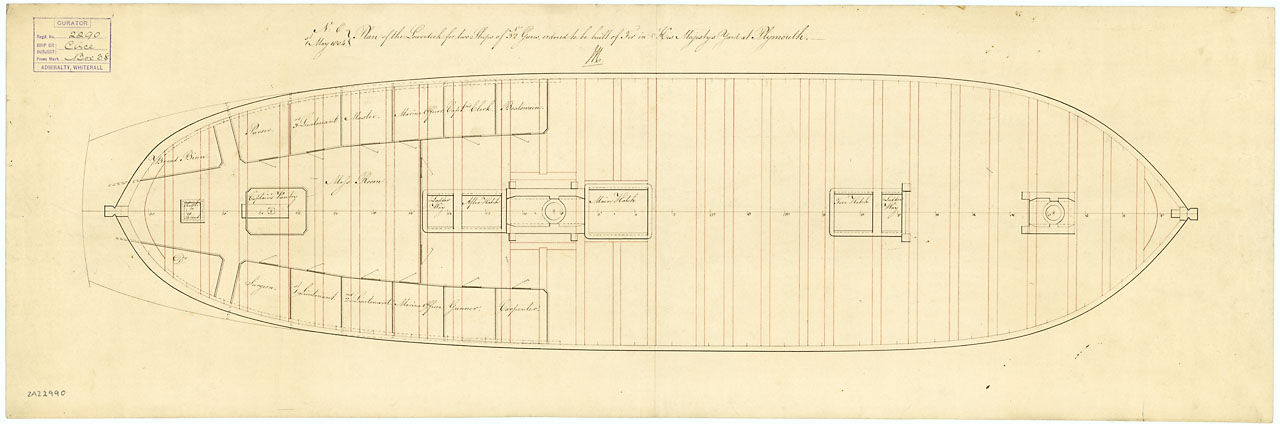 CURATOR
Regd. No. 2290
SHIP ETC: Circe
SUBJECT:
Press Mark. Box 38
ADMIRALTY, WHITEHALL
No. 6
May 1804
Plan of the Lowerdeck for two Ships of 32 Guns, ordered to be built of Fir in His Majesty's Yard at Plymouth.
Bread Binn
Purser.
3rd Lieutenant
Master.
Marine Officer
Captns Clerk.
Boatswain.
Mess Room
Captains Pantry
Ladder Way
After Hatch
Main Hatch
Fore Hatch
Ladder Way
Do.
Surgeon.
1st Lieutenant
2nd Lieutenant
Marine Officer
Gunner.
Carpenter.
ZAZ2990